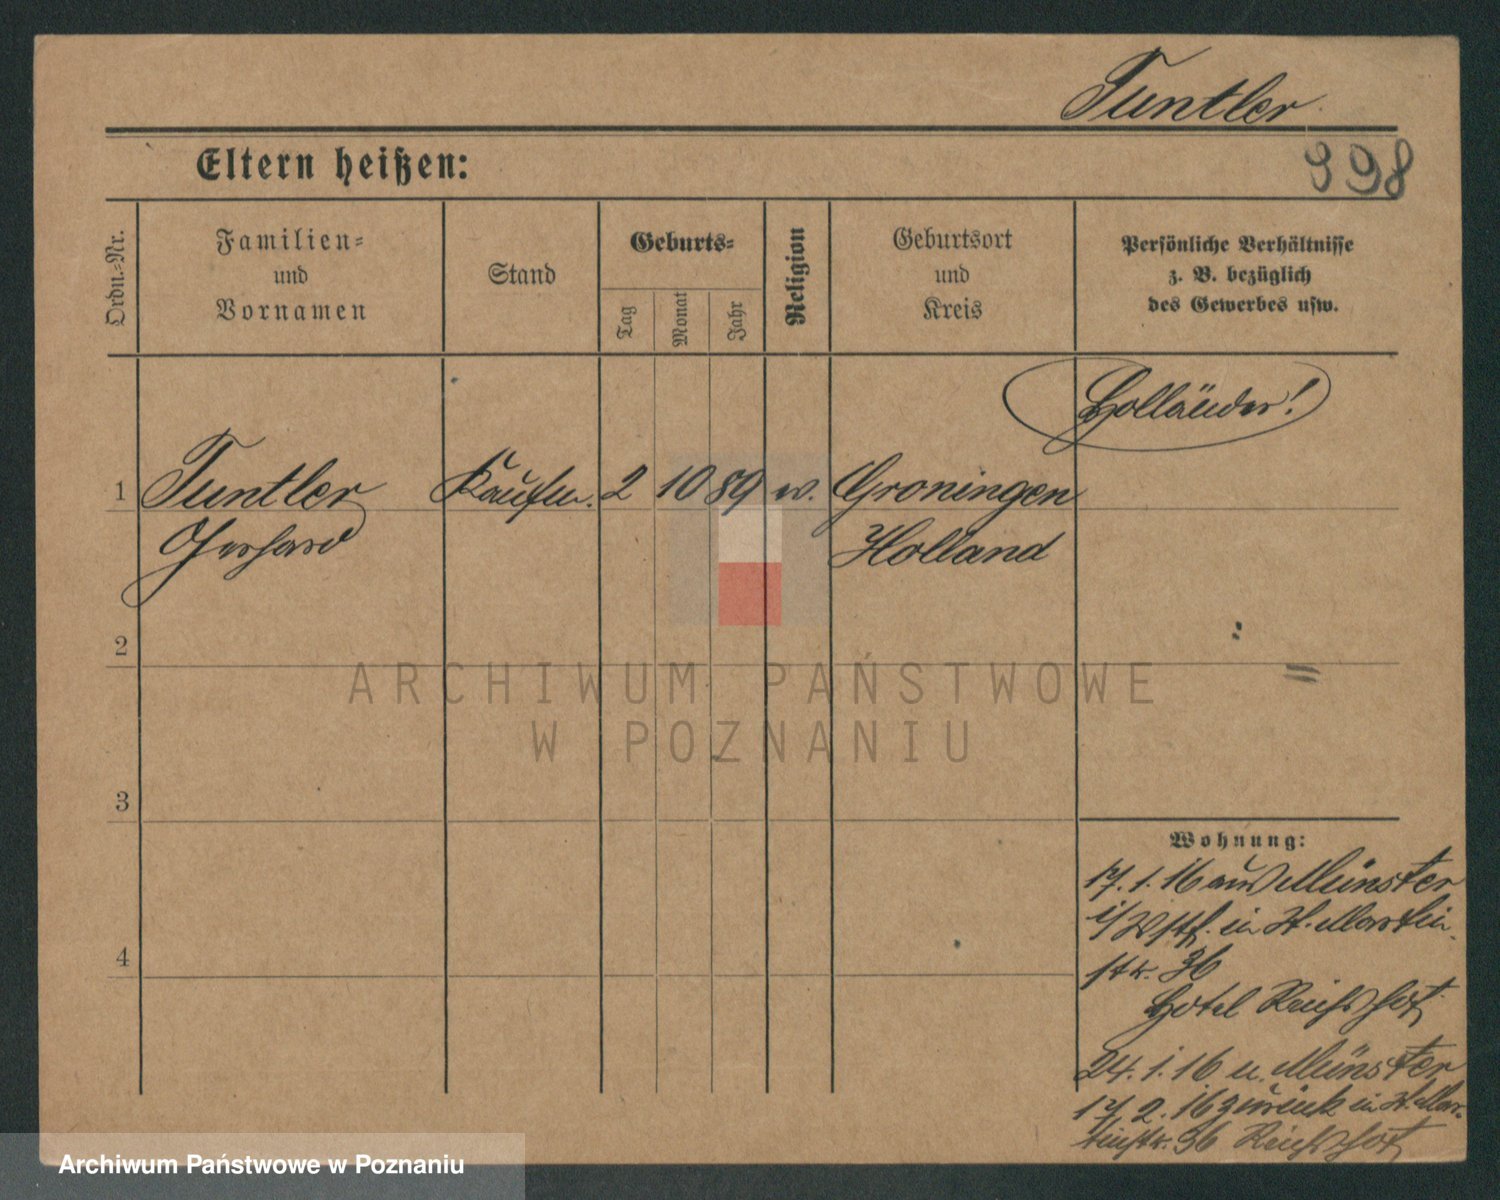 Tuntler
398
Eltern heißen:
Ordn.-Nr.
Familien-
und
Vornamen
Stand
Geburts-
Tag
Monat
Jahr
Religion
Geburtsort
und
Kreis
Persönliche Verhältnisse
z. B. bezüglich
des Gewerbes usw.
Holländer!
1 Tuntler Kaufm. 2 10 89 w. Groningen
Gerhard Holland
2
3
4
ARCHIWUM PAŃSTWOWE
W POZNANIU
Wohnung:
17. 1. 16 aus Münster
i/Wstf. in St. Martin
str. 36
Hotel Reichshof
24. 1. 16 n. Münster
17. 2. 16 zurück in St. Mar-
tinstr. 36 Reichshof
Archiwum Państwowe w Poznaniu